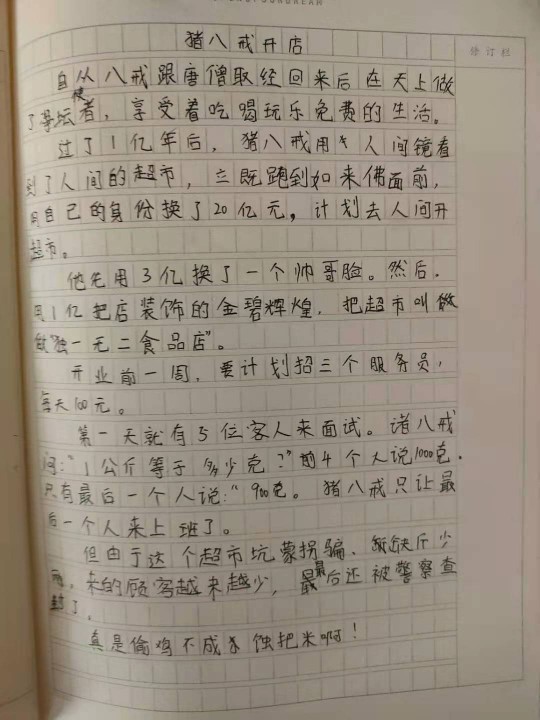 猪八戒开店
修订栏
自从八戒跟唐僧取经回来后在天上做
了净坛使者，享受着吃喝玩乐免费的生活。
过了1亿年后，猪八戒用人间镜看
到了人间的超市，立既跑到如来佛面前，
用自己的身份换了20亿元，计划去人间开
超市。
他先用3亿换了一个帅哥脸。然后，
用1亿把店装饰的金碧辉煌，把超市叫做
做“独一无二食品店”。
开业前一周，要计划招三个服务员，
每天100元。
第一天就有5位客人来面试。诸八戒
问：“1公斤等于多少克？”前4个人说1000克.
只有最后一个人说：“900克。猪八戒只让最
后一个人来上班了。
但由于这个超市坑蒙拐骗、缺斤少
两，来的顾客越来越少，最后还被警察查
封了.
真是偷鸡不成蚀把米啊！